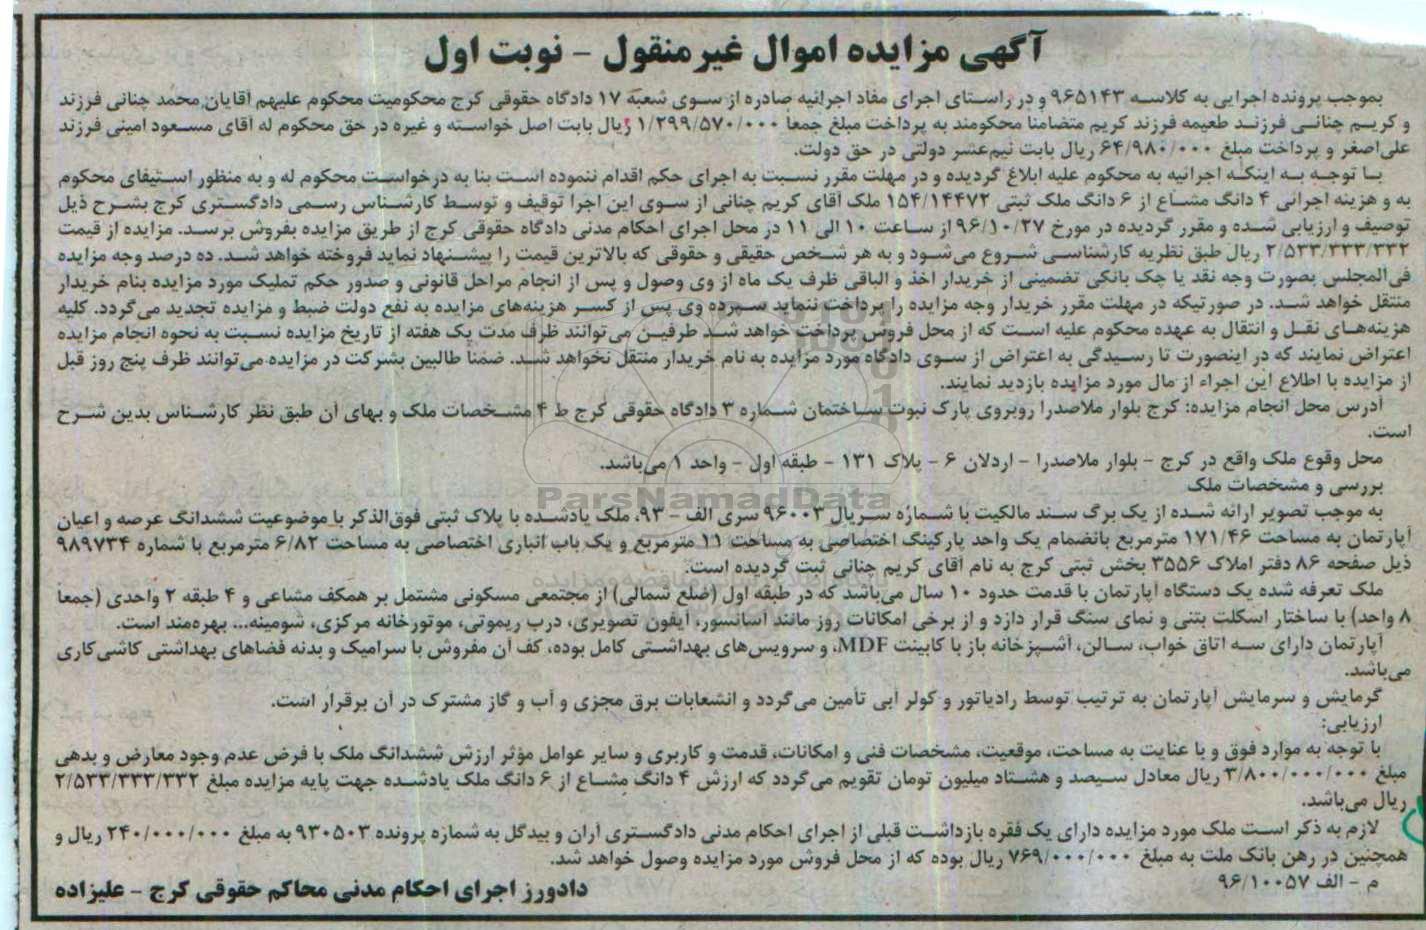 آگهی مزایده اموال غیرمنقول - نوبت اول
بموجب پرونده اجرایی به کلاسه ۹۶۵۱۴۳ و در راستای اجرای مفاد اجرائیه صادره از سوی شعبه ۱۷ دادگاه حقوقی کرج محکومیت محکوم علیهم آقایان محمد چنانی فرزند
و کریم چنانی فرزند طعیمه فرزند کریم متضامنا محکومند به پرداخت مبلغ جمعا ۱/۲۹۹/۵۷۰/۰۰۰ ریال بابت اصل خواسته و غیره در حق محکوم له آقای مسعود امینی فرزند
علی‌اصغر و پرداخت مبلغ ۶۴/۹۸۰/۰۰۰ ریال بابت نیم‌عشر دولتی در حق دولت.
با توجه به اینکه اجرائیه به محکوم علیه ابلاغ گردیده و در مهلت مقرر نسبت به اجرای حکم اقدام ننموده است بنا به درخواست محکوم له و به منظور استیفای محکوم
به و هزینه اجرائی ۴ دانگ مشاع از ۶ دانگ ملک ثبتی ۱۵۴/۱۴۴۷۲ ملک آقای کریم چنانی از سوی این اجرا توقیف و توسط کارشناس رسمی دادگستری کرج بشرح ذیل
توصیف و ارزیابی شده و مقرر گردیده در مورخ ۹۶/۱۰/۲۷ از ساعت ۱۰ الی ۱۱ در محل اجرای احکام مدنی دادگاه حقوقی کرج از طریق مزایده بفروش برسد. مزایده از قیمت
۲/۵۳۳/۳۳۳/۳۳۲ ریال طبق نظریه کارشناسی شروع می‌شود و به هر شخص حقیقی و حقوقی که بالاترین قیمت را پیشنهاد نماید فروخته خواهد شد. ده درصد وجه مزایده
فی‌المجلس بصورت وجه نقد یا چک بانکی تضمینی از خریدار اخذ و الباقی ظرف یک ماه از وی وصول و پس از انجام مراحل قانونی و صدور حکم تملیک مورد مزایده بنام خریدار
منتقل خواهد شد. در صورتیکه در مهلت مقرر خریدار وجه مزایده را پرداخت ننماید سپرده وی پس از کسر هزینه‌های مزایده به نفع دولت ضبط و مزایده تجدید می‌گردد. کلیه
هزینه‌های نقل و انتقال به عهده محکوم علیه است که از محل فروش پرداخت خواهد شد طرفین می‌توانند ظرف مدت یک هفته از تاریخ مزایده نسبت به نحوه انجام مزایده
اعتراض نمایند که در اینصورت تا رسیدگی به اعتراض از سوی دادگاه مورد مزایده به نام خریدار منتقل نخواهد شد. ضمنا طالبین بشرکت در مزایده می‌توانند ظرف پنج روز قبل
از مزایده با اطلاع این اجراء از مال مورد مزایده بازدید نمایند.
آدرس محل انجام مزایده: کرج بلوار ملاصدرا روبروی پارک نبوت ساختمان شماره ۳ دادگاه حقوقی کرج ط ۴ مشخصات ملک و بهای آن طبق نظر کارشناس بدین شرح
است.
محل وقوع ملک واقع در کرج - بلوار ملاصدرا - اردلان ۶ - پلاک ۱۳۱ - طبقه اول - واحد ۱ می‌باشد.
بررسی و مشخصات ملک
ParsNamadData
به موجب تصویر ارائه شده از یک برگ سند مالکیت با شماره سریال ۹۶۰۰۳ سری الف - ۹۳، ملک یادشده با پلاک ثبتی فوق‌الذکر با موضوعیت ششدانگ عرصه و اعیان
آپارتمان به مساحت ۱۷۱/۴۶ مترمربع بانضمام یک واحد پارکینگ اختصاصی به مساحت ۱۱ مترمربع و یک باب انباری اختصاصی به مساحت ۶/۸۲ مترمربع با شماره ۹۸۹۷۳۴
ذیل صفحه ۸۶ دفتر املاک ۳۵۵۶ بخش ثبتی کرج به نام آقای کریم چنانی ثبت گردیده است.
ملک تعرفه شده یک دستگاه آپارتمان با قدمت حدود ۱۰ سال می‌باشد که در طبقه اول (ضلع شمالی) از مجتمعی مسکونی مشتمل بر همکف مشاعی و ۴ طبقه ۲ واحدی (جمعا
۸ واحد) با ساختار اسکلت بتنی و نمای سنگ قرار دارد و از برخی امکانات روز مانند آسانسور، آیفون تصویری، درب ریموتی، موتورخانه مرکزی، شومینه... بهره‌مند است.
آپارتمان دارای سه اتاق خواب، سالن، آشپزخانه باز با کابینت MDF، و سرویس‌های بهداشتی کامل بوده، کف آن مفروش با سرامیک و بدنه فضاهای بهداشتی کاشی‌کاری
می‌باشد.
گرمایش و سرمایش آپارتمان به ترتیب توسط رادیاتور و کولر آبی تأمین می‌گردد و انشعابات برق مجزی و آب و گاز مشترک در آن برقرار است.
ارزیابی:
با توجه به موارد فوق و با عنایت به مساحت، موقعیت، مشخصات فنی و امکانات، قدمت و کاربری و سایر عوامل مؤثر ارزش ششدانگ ملک با فرض عدم وجود معارض و بدهی
مبلغ ۳/۸۰۰/۰۰۰/۰۰۰ ریال معادل سیصد و هشتاد میلیون تومان تقویم می‌گردد که ارزش ۴ دانگ مشاع از ۶ دانگ ملک یادشده جهت پایه مزایده مبلغ ۲/۵۳۳/۳۳۳/۳۳۲
ریال می‌باشد.
لازم به ذکر است ملک مورد مزایده دارای یک فقره بازداشت قبلی از اجرای احکام مدنی دادگستری آران و بیدگل به شماره پرونده ۹۳۰۵۰۳ به مبلغ ۲۴۰/۰۰۰/۰۰۰ ریال و
همچنین در رهن بانک ملت به مبلغ ۷۶۹/۰۰۰/۰۰۰ ریال بوده که از محل فروش مورد مزایده وصول خواهد شد.
م - الف ۹۶/۱۰۰۵۷
دادورز اجرای احکام مدنی محاکم حقوقی کرج - علیزاده